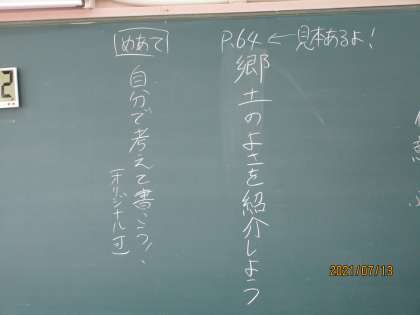 P.64 ← 見本あるよ!
郷土のよさを紹介しよう
めあて
自分で考えて書こう!、
2
2021/07/13